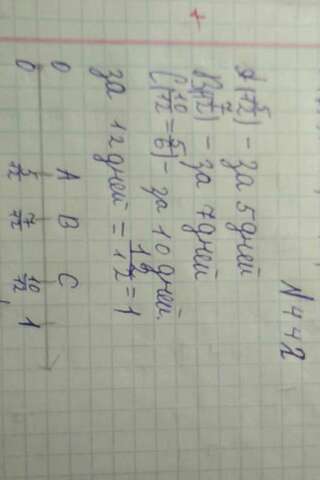 N 442
A(5/12) - за 5 дней
B(7/12) - за 7 дней
C(10/12 = 5/6) - за 10 дней.
за 12 дней = 12/12 = 1
0 A B C
0 5/12 7/12 10/12 1